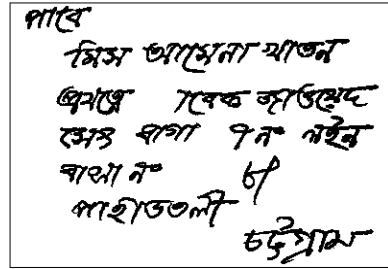 পাবে
মিস আমেনা খাতুন
প্রযত্নে জাওয়েদ
সেং বাগা ৭ নং লইন
বাসা নং
পাহাড়তলী
চট্টগ্রাম